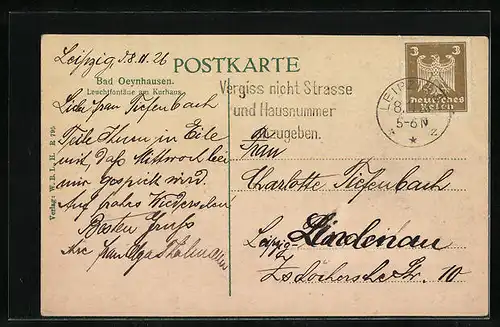 Leipzig d. 8. 11. 26
Bad Oeynhausen.
Leuchtfontäne am Kurhaus.
POSTKARTE
Vergiss nicht Strasse
und Hausnummer
anzugeben.
LEIPZIG
8.
5-6 N
* 2
3 3
Deutsches
Reich
Liebe Frau Tiefenbach
Teile Ihnen in Eile
mit, daß Mittwoch bei
mir gespielt wird.
Auf frohes Wiedersehen
Besten Gruß
Ihre Frau Olga
Verlag: W. B. L. H. R 795
Frau
Charlotte Tiefenbach
Leipzig-Lindenau
Zschochersche Str. 10